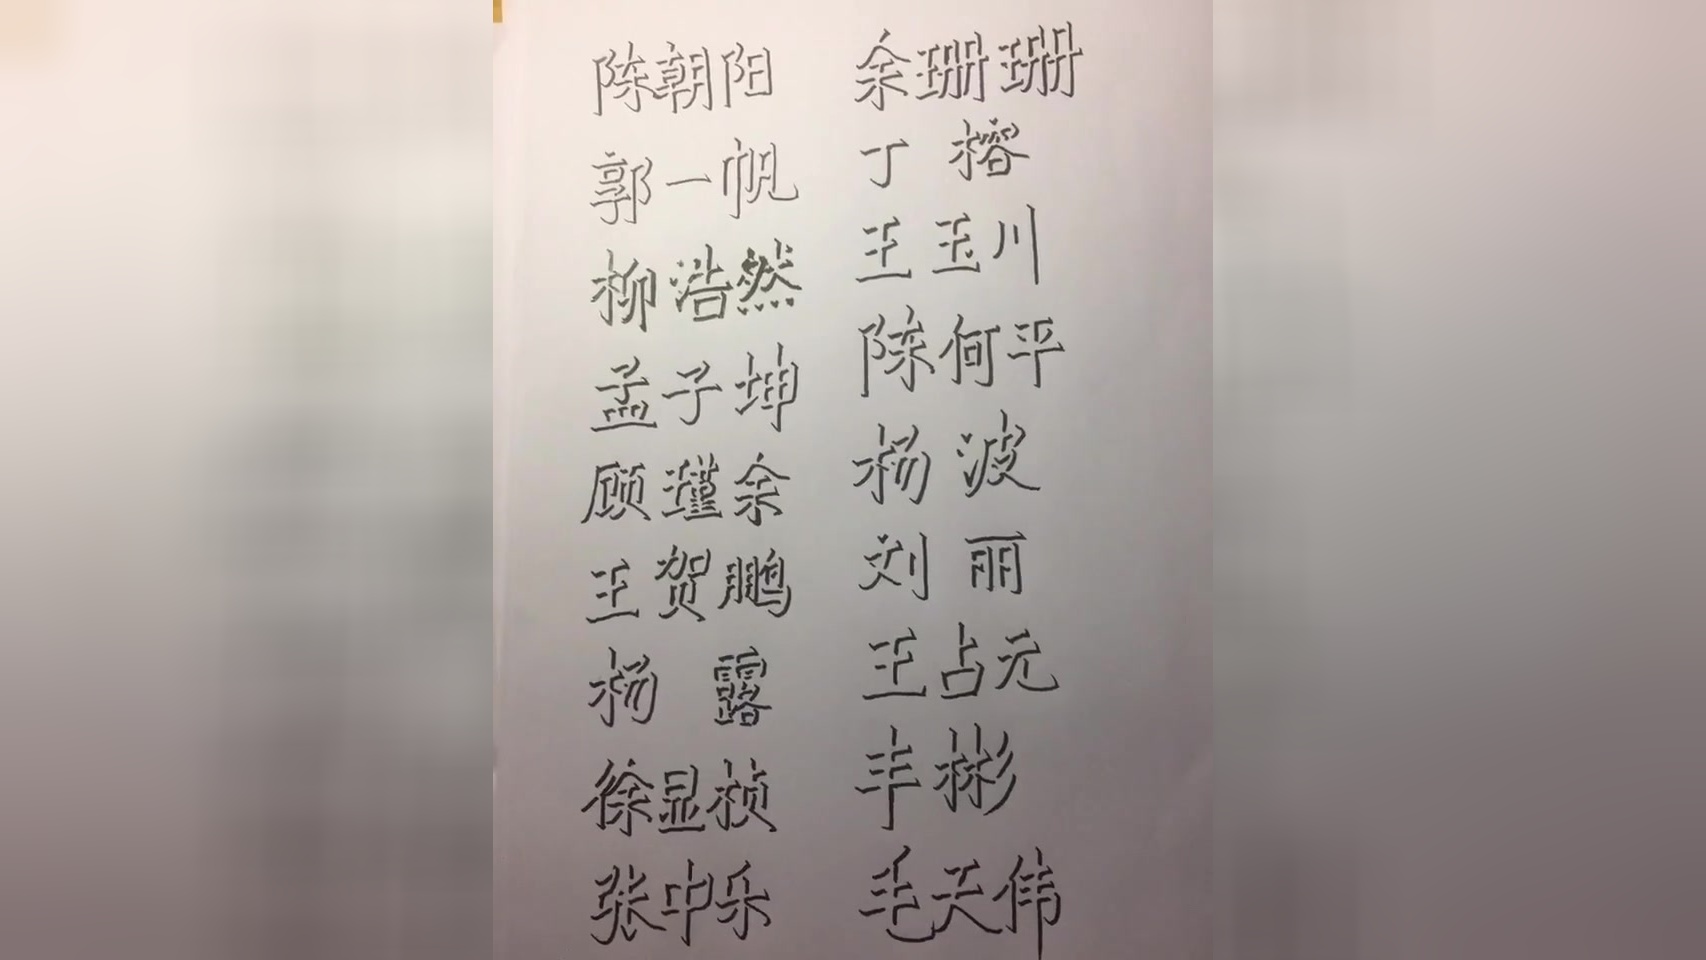 陈朝阳 余珊珊
郭一帆 丁榕
柳浩然 王玉川
孟子坤 陈何平
顾瑾余 杨波
王贺鹏 刘丽
杨露 王占元
徐显桢 丰彬
张中乐 毛天伟